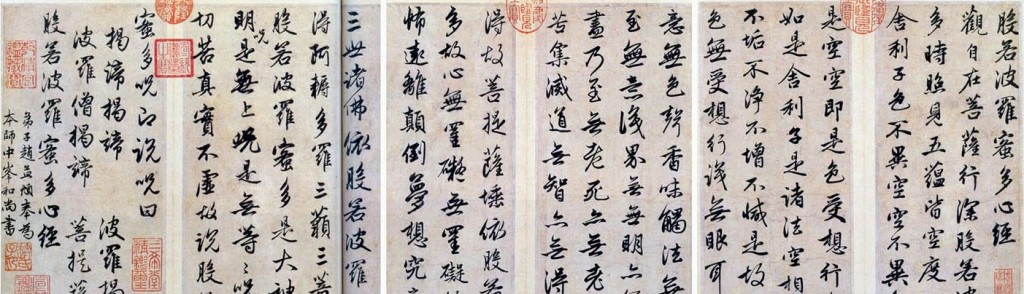 般若波羅蜜多心經
觀自在菩薩行深般若波
多時照見五蘊皆空度
舍利子色不異空空不異
是空空即是色受想行
如是舍利子是諸法空相
不垢不淨不增不減是故
色無受想行識無眼耳
意無色聲香味觸法無
至無意識界無無明亦無
盡乃至無老死亦無老
苦集滅道無智亦無得
得故菩提薩埵依般若
多故心無罣礙無罣礙
怖遠離顛倒夢想究
三世諸佛依般若波羅
得阿耨多羅三藐三菩
般若波羅蜜多是大神
明呪是無上呪是無等〻呪
切苦真實不虛故說般
蜜多呪即說呪曰
揭諦揭諦 波羅揭
波羅僧揭諦 菩提
般若波羅蜜多心經
弟子趙孟頫奉為
本師中峯和尚書